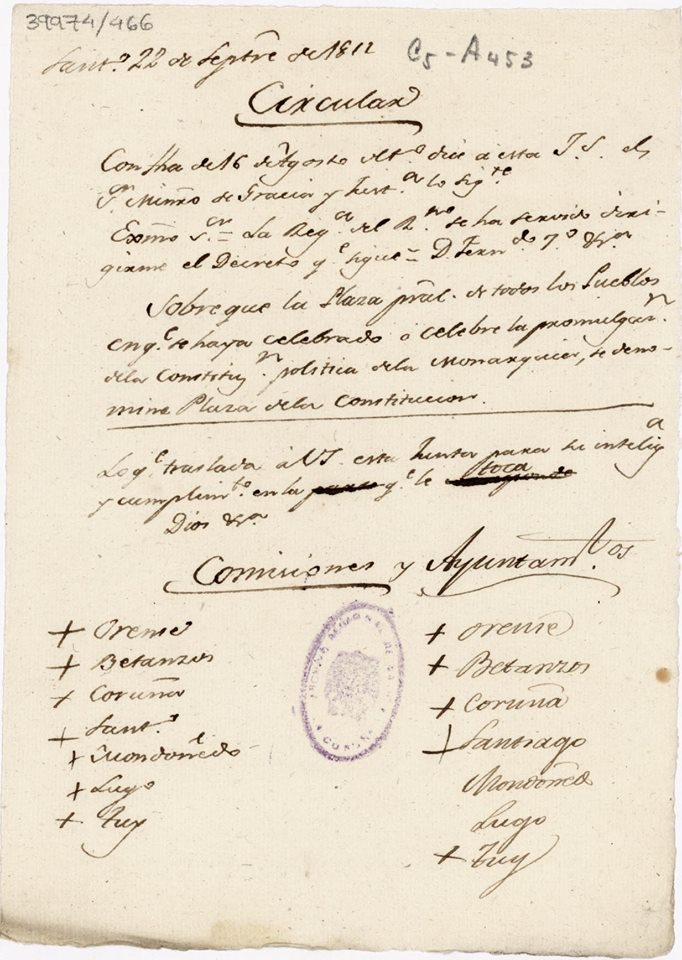 39974/466
C5-A453
Santº 22 de Septre de 1812
Circular
Con fha de 16 de Agosto ultº dice a esta J.S. el
Sr Minro de Gracia y Justª lo sigte
Exmo Sor = La Regª del Rno se ha servido diri-
girme el Decreto qe sigue = D. Ferndo 7º &ra
Sobre que la Plaza pral. de todos los Pueblos
en qe se haya celebrado o celebre la promulgn.
dela Constitun. politica de la Monarquia, se deno-
mine Plaza dela Constitucion.
Lo qe traslada á VS. esta Junta para su inteliga
y cumplimto en la parte qe le toca
Dios &ra
Comisiones y Ayuntamtos
+ Orense
+ Betanzos
+ Coruña
+ Santº
+ Mondoñedo
+ Lugo
+ Tuy
+ Orense
+ Betanzos
+ Coruña
+ Santiago
Mondoñedo
Lugo
+ Tuy
ARCHIVO REGIONAL DE GALICIA
CORUÑA